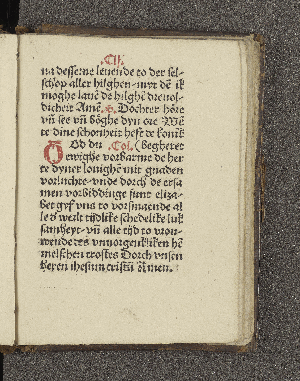 .CII.
na desseme leuende to der sel-
schop aller hilghen. myt dē ik
moghe lauē de hilghē dreuol-
dicheit Amē. v. Dochter hōre
vñ see vñ bōghe dyn ore Wē
te dine schonheit heft de konīk
Od dir .Col. (Begheret
O ewighe vorbarme de her
te dyner louighē mit gnaden
vorluchte. vnde dorch de ersa
men vorbiddinge sunt eliza-
bet gyf vns to vorsmaende al
le d werlt tijdlike schedelike luk
samheyt. vñ alle tijd to vron-
wende des vnuorgenkliken hē
melschen trostes Dorch vnsen
heren ihesum cristū Amen.